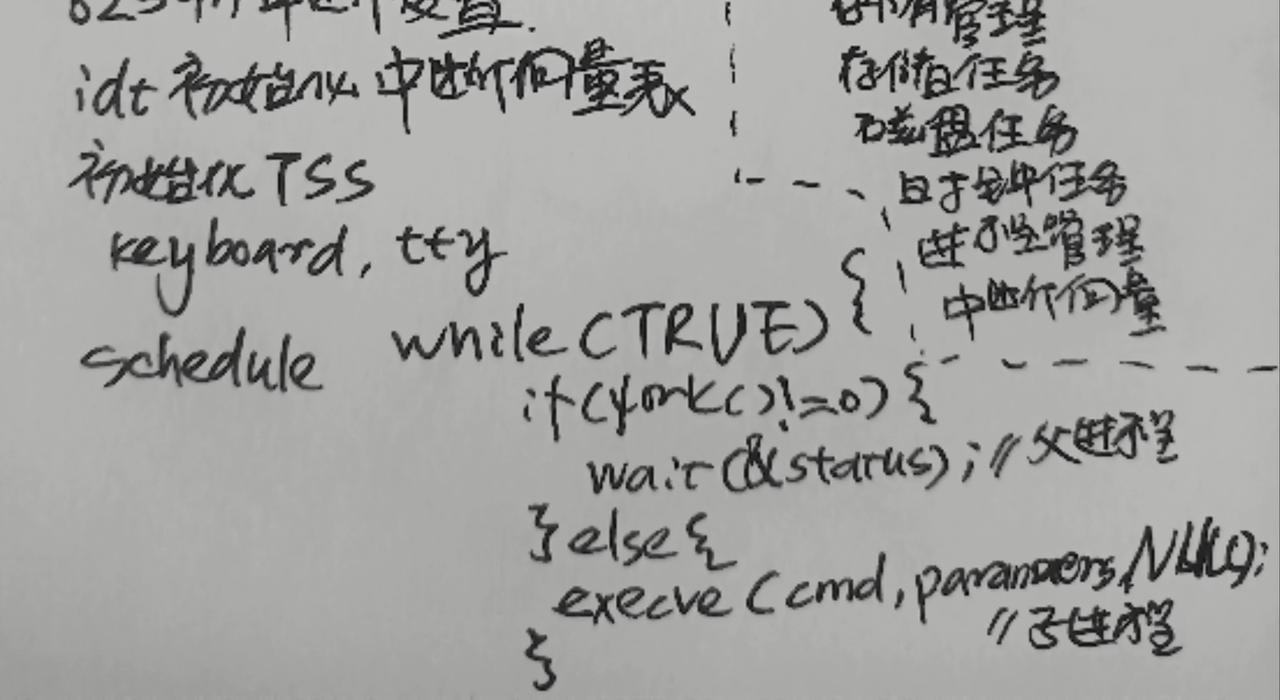 idt 初始化 中断向量表
初始化 TSS
keyboard, tty
schedule
管理
存储任务
磁盘任务
时钟任务
进程管理
中断向量
while(TRUE) {
if(fork()!=0) {
wait(&status); // 父进程
} else {
execve(cmd, parameters, NULL);
// 子进程
}